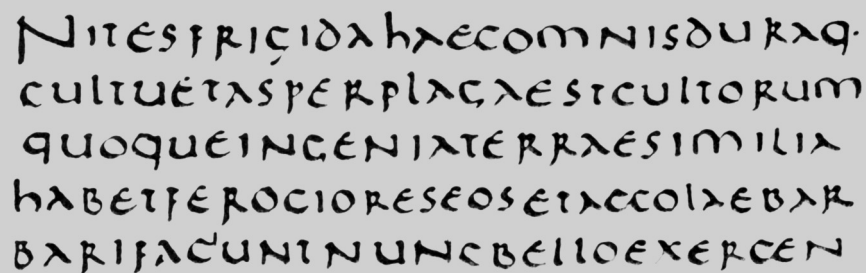 Nitesfrigidahaecomnisduraq·
cultuetasperplagaestcultorum
quoqueingeniaterraesimilia
habetferocioreseosetaccolaebar
barifaciuntnuncbelloexercen